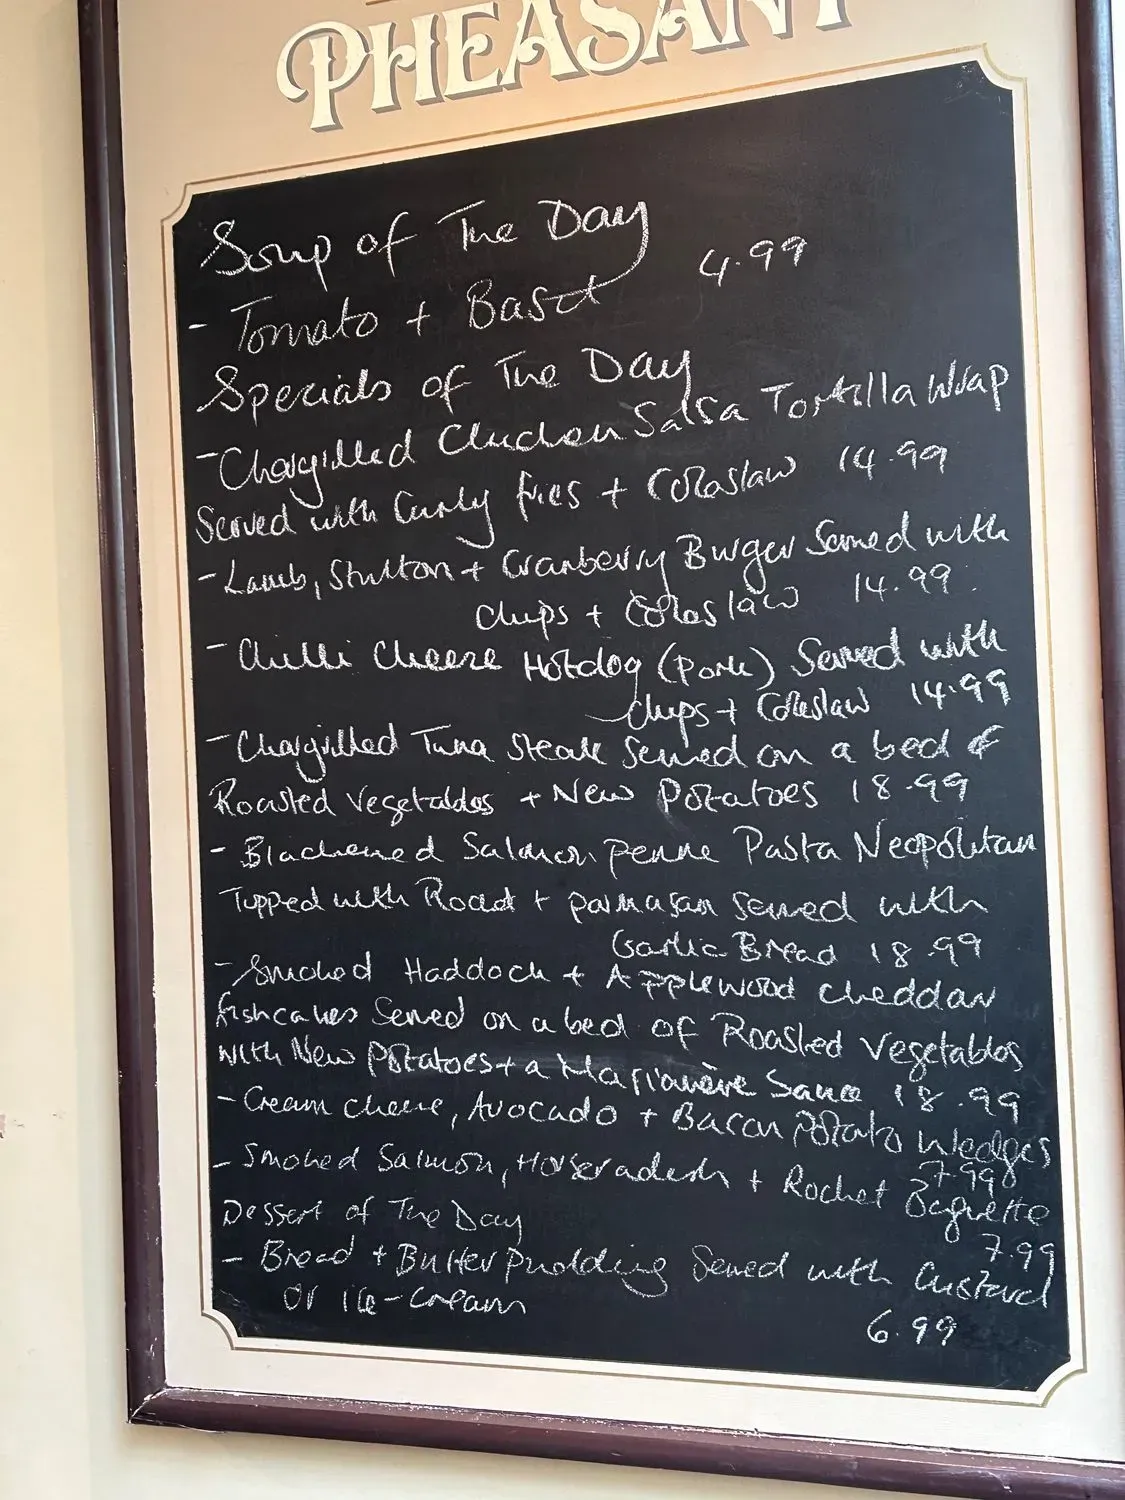 PHEASANT
Soup of The Day
- Tomato + Basil 4.99
Specials of The Day
- Chargrilled Chicken Salsa Tortilla Wrap
Served with Curly fries + Coleslaw 14.99
- Lamb, Stilton + Cranberry Burger Served with
Chips + Coleslaw 14.99
- Chilli Cheese Hotdog (Pork) Served with
Chips + Coleslaw 14.99
- Chargrilled Tuna Steak Served on a bed of
Roasted Vegetables + New Potatoes 18.99
- Blackened Salmon, Penne Pasta Neopolitan
Topped with Rocket + parmasan served with
Garlic Bread 18.99
- Smoked Haddock + Applewood Cheddar
fishcakes Served on a bed of Roasted Vegetables
with New Potatoes + a Marionière Sauce 18.99
- Cream cheese, Avocado + Bacon Potato Wedges
7.99
- Smoked Salmon, Horseradish + Rocket Baguette
7.99
Dessert of The Day
- Bread + Butter Pudding Served with Custard
or ice-cream
6.99